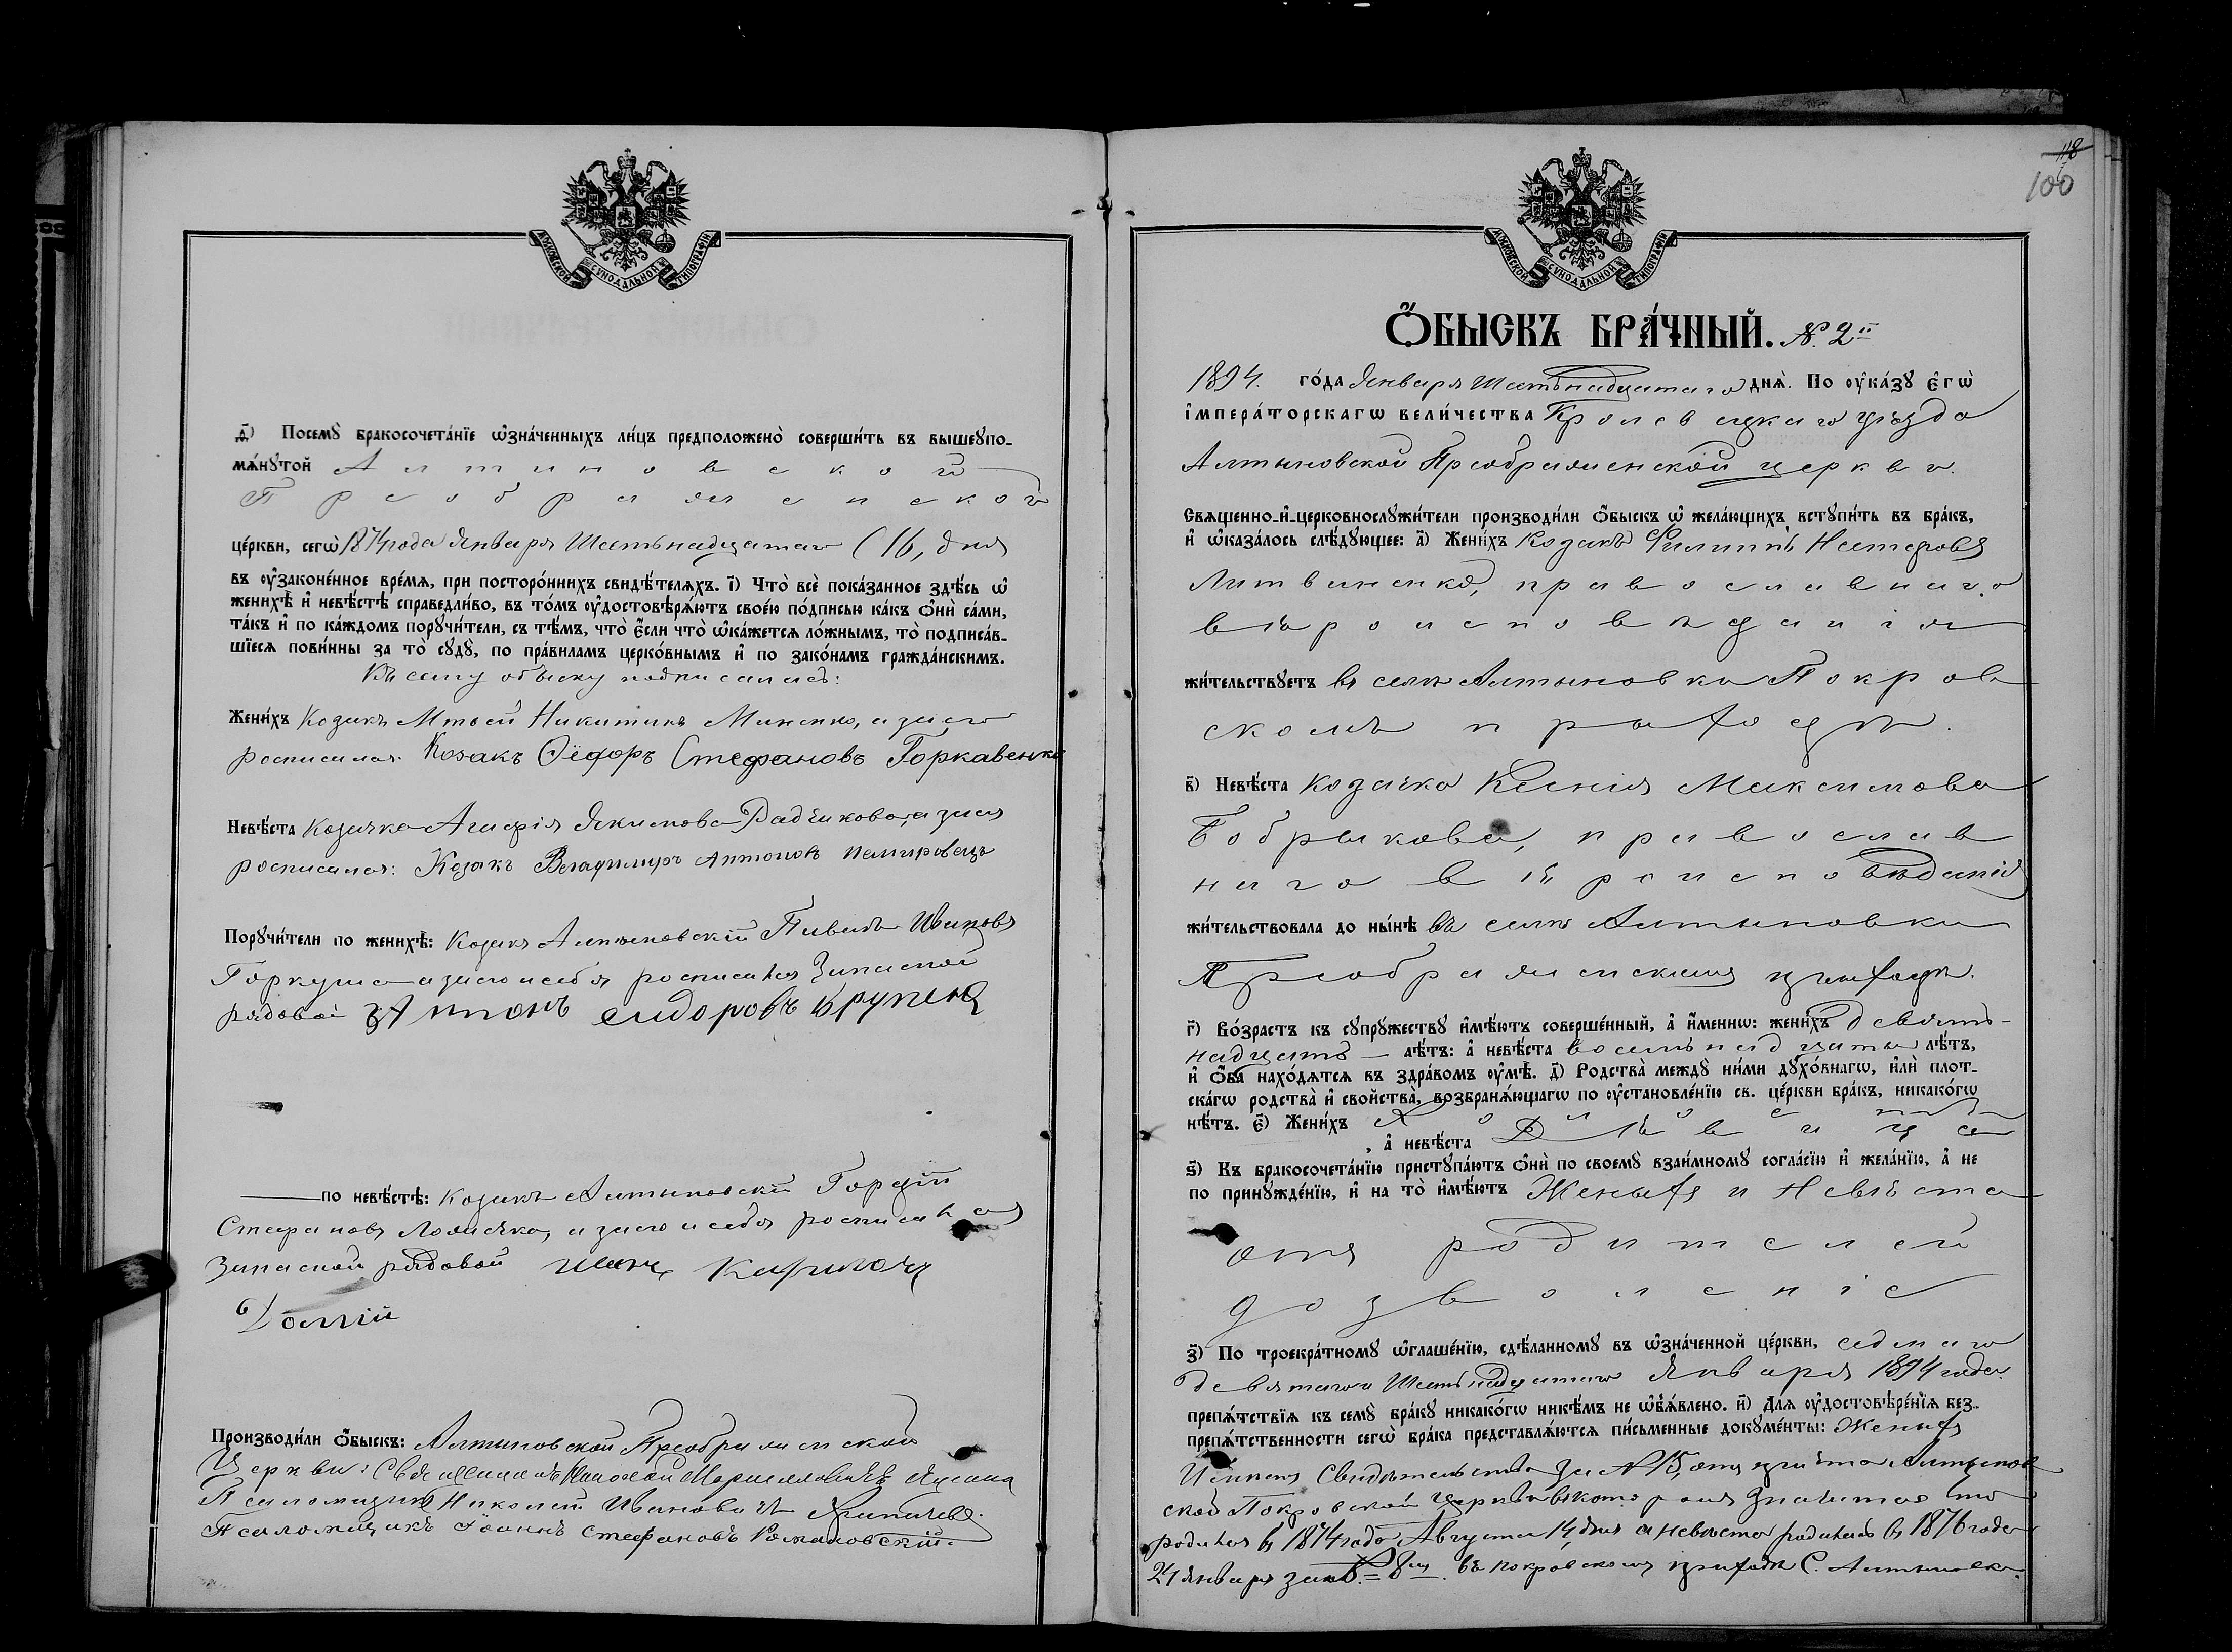 МОСКОВСКОЙ СѴНОДАЛЬНОЙ ТИПОГРАФІИ
д҃) Посемꙋ̀ бракосочета́нїе ѡ҆зна́ченныхъ ли́цъ предположено̀ соверши́ть въ вышеꙋпо-
мѧ́нꙋтой Алтыновской
Преображенской
це́ркви, сегѡ̀ 1894 года Января Шестьнадцатаго (16, дня
въ ᲂу҆зако́ненное вре́мѧ, при посторо́ннихъ свидѣ́телѧхъ. і҃) Что̀ всѐ пока́занное здѣ́сь ѡ҆
женихѣ̀ и҆ невѣ́стѣ справедли́во, въ то́мъ ᲂу҆достовѣрѧ́ютъ свое́ю по́дписью ка́къ ѻ҆нѝ са́ми,
та́къ и҆ по ка́ждомъ порꙋчи́тели, съ тѣ́мъ, что̀ є҆́сли что̀ ѡ҆ка́жетсѧ ло́жнымъ, то̀ подписа́в-
шїесѧ пови́нны за то̀ сꙋдꙋ̀, по пра́виламъ церко́внымъ и҆ по зако́намъ гражда́нскимъ.
Къ сему обыску подписались:
Жени́хъ Козакъ Никитинъ Миненко, а за его
росписался: Козакъ Ѳёдоръ Стефановъ Горкавенко
Невѣ́ста Козачка Агафія Якимова Радчикова, а за ея
росписался: Козакъ Владимиръ Антоновъ Немировецъ
Порꙋчи́тели по женихѣ̀: Козакъ Алтыновскій Ивановъ
Горкуша а за его и себя росписался Запасной
рядовой Антонъ Сидоровъ Крупеня
по невѣ́стѣ: Козакъ Алтыновскій Гордій
Стефановъ Ломечко, а за его и себя росписался
Запасной рядовой
Долгій
Производи́ли ѻ҆́быскъ: Алтыновской Преображенской
Церкви: Священникъ Николай
Псаломщикъ Николай Ивановичъ
Псаломщикъ Іоаннъ Стефановъ Романовскій.
118
100
МОСКОВСКОЙ СѴНОДАЛЬНОЙ ТИПОГРАФІИ
Ѻ҆́БЫСКЪ БРА́ЧНЫЙ. № 2й
1894. го́да Января Шестьнадцатаго днѧ̀. По ᲂу҆ка́зꙋ є҆гѡ̀
і҆мпера́торскагѡ вели́чества Кролевецкаго уѣзда
Алтыновской Преображенской церкви.
Свѧщенно-и҆-церковнослꙋжи́тели производи́ли ѻ҆́быскъ ѡ҆ жела́ющихъ встꙋпи́ть въ бра́къ,
и҆ ѡ҆каза́лось слѣ́дꙋющее: а҃) Жени́хъ Козакъ Филиппъ Нестеровъ
Литвиненко, православнаго
вѣроисповѣданія
жи́тельствꙋетъ въ селѣ Алтыновка Покров
скомъ приходѣ.
в҃) Невѣ́ста Козачка Ксенія Максимова
Бобрыкова, православ
наго вѣроисповѣданія
жи́тельствовала до ны́нѣ въ селѣ Алтыновка
Преображенскомъ приходѣ.
г҃) Во́зрастъ къ сꙋпрꙋ́жествꙋ и҆мѣ́ютъ соверше́нный, а҆ и҆́меннѡ: жени́хъ девять-
надцать — лѣ́тъ: а҆ невѣ́ста восемьнадцать лѣ́тъ,
и҆ ѻ҆́ба нахо́дѧтсѧ въ здра́вомъ ᲂу҆мѣ̀. д҃) Родства̀ междꙋ̀ ни́ми дꙋхо́внагѡ, и҆лѝ плот-
ска́гѡ родства̀ и҆ сво́йства̀, возбранѧ́ющагѡ по ᲂу҆становле́нїю св. це́ркви бра́къ, никако́гѡ
нѣ́тъ. є҃) Жени́хъ Холостъ
, а҆ невѣ́ста Дѣвица
ѕ҃) Къ бракосочета́нїю пристꙋпа́ютъ ѻ҆нѝ по своемꙋ̀ взаи́мномꙋ согла́сїю и҆ жела́нїю, а҆ не
по принꙋжде́нїю, и҆ на то̀ и҆мѣ́ютъ Женихъ и Невѣста
отъ родителей
дозволеніе
з҃) По троекра́тномꙋ ѡ҆глаше́нїю, сдѣ́ланномꙋ въ ѡ҆зна́ченной це́ркви, седьмаго
девятаго и Шестьнадцатаго Января 1894 года
препѧ́тствїѧ къ семꙋ̀ бра́кꙋ никако́гѡ никѣ́мъ не ѡ҆б̾ѧ́влено. и҃) Длѧ ᲂу҆достовѣре́нїѧ без-
препѧ́тственности сегѡ̀ бра́ка представлѧ́ютсѧ пи́сьменные докꙋме́нты: Женихъ
Свидѣтельство за № 15, отъ причта Алтынов
ской Покровской церкви въ которомъ значится что
родился въ 1874 года Августа 14 дня а невѣста родилась въ 1876 года
24 января въ покровскомъ приходѣ С. Алтыновка.